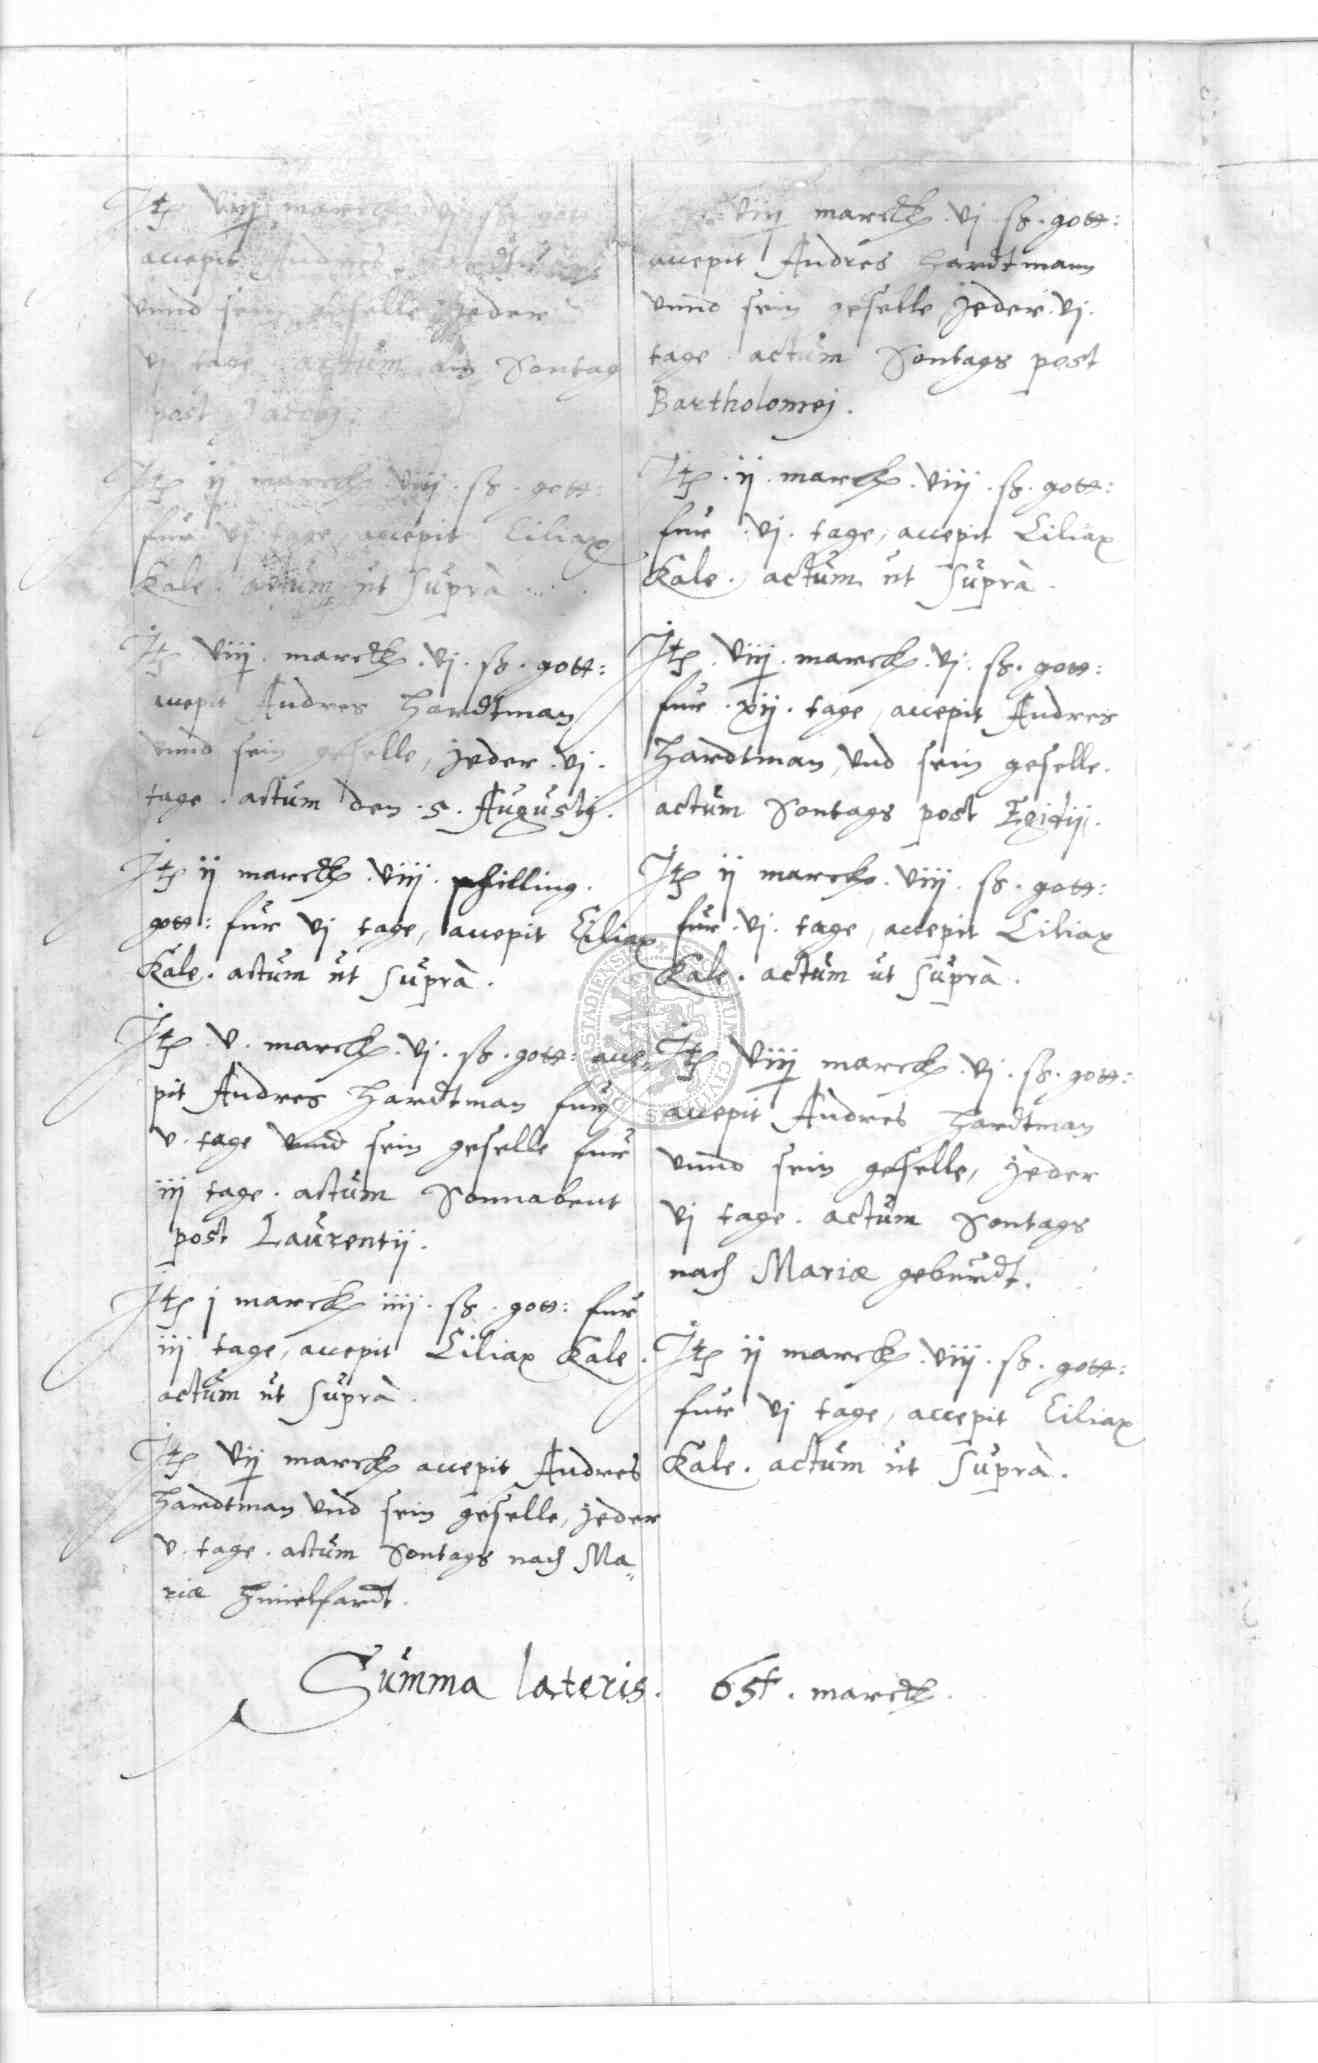 Jtem viij marck vj ß gott:
accepit Andres Hardtman
vnnd sein geselle jeder
vj tage . actum am Sontag
post Jacobj .
Jtem ij marck viij . ß . gott:
fur vj tage, accepit Ciliax
Kale . actum ut Suprà .
Jtem viij . marck . vj . ß . gott:
accepit Andres Hardtman
vnnd sein geselle, jeder . vj .
tage . actum den . 5 . Augustj .
Jtem ij marck . viij . schilling .
gott: fur vj tage, accepit Ciliax
Kale . actum ut Suprà .
Jtem . v . marck . vj . ß . gott: acce„
pit Andres Hardtman fur
v . tage vnnd sein geselle fur
iij tage . actum Sonnabent
post Laurentij .
Jtem j marck iiij . ß . gott: fur
iij tage, accepit Ciliax Kale .
actum ut Suprà .
Jtem vij marck accepit Andres
Hardtman vnd sein geselle, jeder
v . tage . actum Sontags nach Ma„
riæ Himelfardt .
viij marck . vj ß . gott:
accepit Andres Hardtmann
vnnd sein geselle jeder . vj .
tage . actum Sontags post
Bartholomej .
Jtem . ij . marck . viij . ß . gott:
fur . vj . tage, accepit Ciliax
Kale . actum ut Suprà .
Jtem . viij . marck . vj . ß . gott:
fur . xij . tage, accepit Andres
Hardtman, vnd sein geselle .
actum Sontags post Egidij .
Jtem ij marck . viij . ß . gott:
fur . vj . tage, accepit Ciliax
Kale . actum ut Suprà .
Jtem viij marck . vj . ß . gott:
accepit Andres Hardtman
vnnd sein geselle, jeder
vj tage . actum Sontags
nach Mariæ geburdt .
Jtem ij marck . viij . ß . gott:
fur vj tage, accepit Ciliax
Kale . actum ut Suprà .
Summa lateris . 65 . marck .